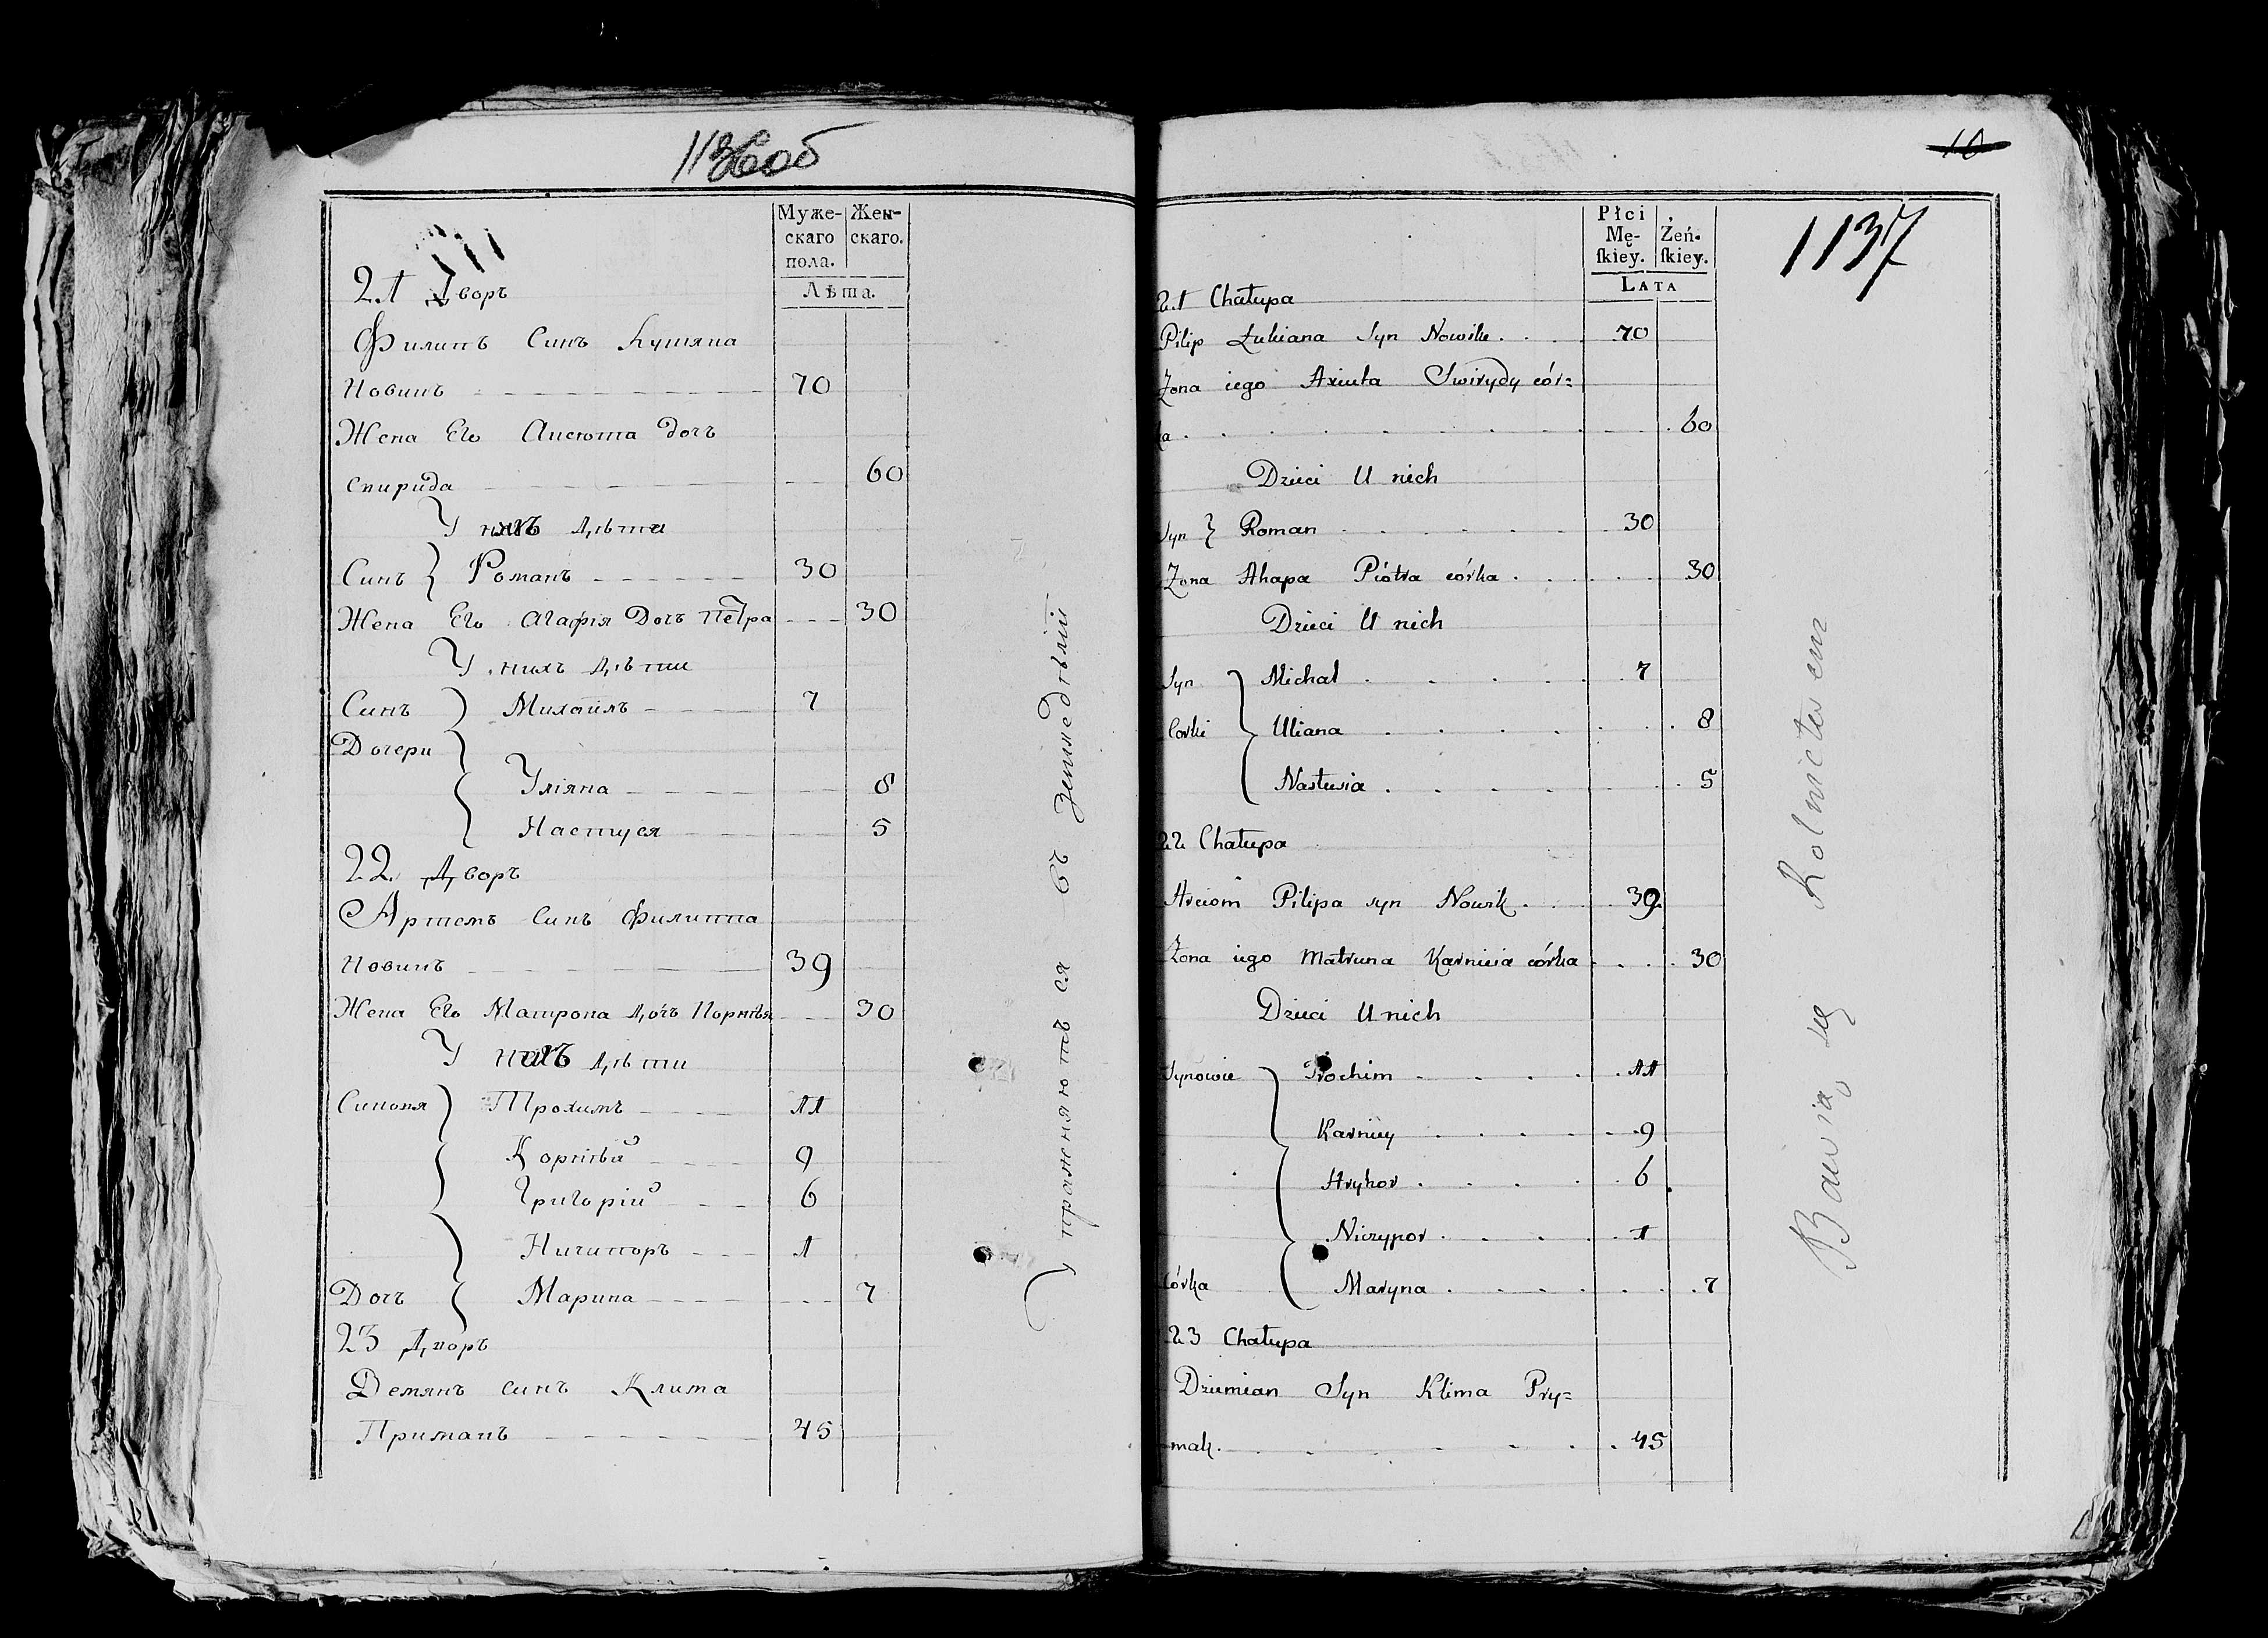 1136об
Муже- Жен-
скаго скаго.
пола.
Лѣта.
21 Дворъ
Филипъ Синъ Лукяна
Новикъ 70
Жена Его Аксюта дочъ
Спирида 60
У нихъ дѣти
Синъ } Романъ 30
Жена Его Агафія Дочъ Петра 30
У нихъ дѣти
Синъ } Михаилъ 7
Дочери
Уліяна 8
Настуся 5
22 Дворъ
Артемъ Синъ Филиппа
Новикъ 39
Жена Его Матрона дочъ Корнѣя 30
У нихъ дѣти
Синовя } Трохимъ 11
Корнѣй 9
Григорій 6
Ничипоръ 1
Дочъ { Марина 7
23 Дворъ
Демянъ синъ Клима
Примакъ 45
Упражняютъся въ Земледѣліи
10
1137
Płci
Mę- Żeń-
ſkiey. ſkiey.
LATA
21 Chałupa
Pilip Łukiana Syn Nowik 70
Żona iego Axiuta Swirydy cór=
ka 60
Dzieci U nich
Syn } Roman 30
Żona Ahapa Piótra córka 30
Dzieci U nich
Syn } Michał 7
Corki Uliana 8
Nastusia 5
22 Chałupa
Arciom Pilipa syn Nowik 39
Żona iego Matruna Karnieia córka 30
Dzieci U nich
Synowie } Trochim 11
Karniey 9
Hryhor 6
Niczypor 1
Córka Maryna 7
23 Chałupa
Dziemian Syn Klima Pry=
mak 45
Bawią się Rolnictwem